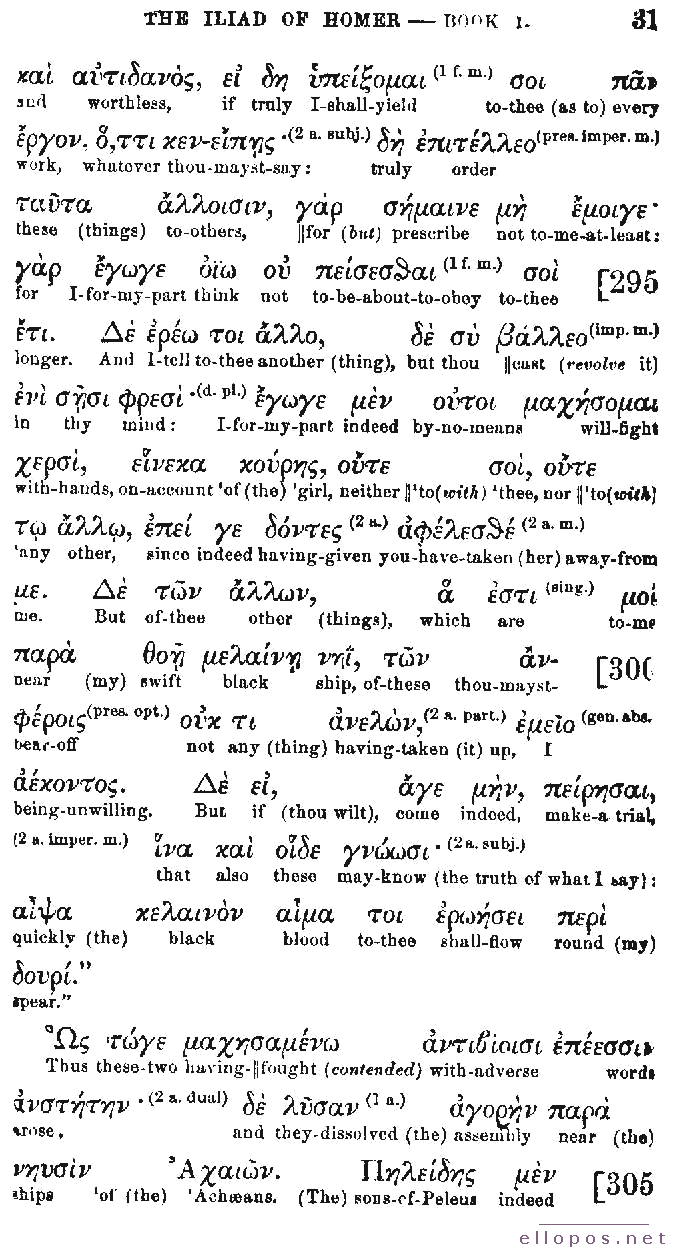 THE ILIAD OF HOMER — BOOK I. 31
καὶ αὐτιδανὸς, εἰ δη ὑπείξομαι (1 f. m.) σοι πᾶν
and worthless, if truly I-shall-yield to-thee (as to) every
ἔργον, ὅ,ττι κεν-εἴπῃς ·(2 a. subj.) δὴ ἐπιτέλλεο (pres. imper. m.)
work, whatever thou-mayst-say: truly order
ταῦτα ἄλλοισιν, γάρ σήμαινε μὴ ἔμοιγε·
these (things) to-others, ‖for (but) prescribe not to-me-at-least:
γὰρ ἔγωγε ὀΐω οὐ πείσεσθαι (1 f. m.) σοὶ [295
for I-for-my-part think not to-be-about-to-obey to-thee
ἔτι. Δὲ ἐρέω τοι ἄλλο, δὲ σὺ βάλλεο (imp. m.)
longer. And I-tell to-thee another (thing), but thou ‖cast (revolve it)
ἐνὶ σῇσι φρεσὶ ·(d. pl.) ἔγωγε μὲν οὔτοι μαχήσομαι
in thy mind: I-for-my-part indeed by-no-means will-fight
χερσὶ, εἵνεκα κούρης, οὔτε σοὶ, οὔτε
with-hands, on-account 'of (the) 'girl, neither ‖'to(with) 'thee, nor ‖'to(with)
τῳ ἄλλῳ, ἐπεί γε δόντες (2 a.) ἀφέλεσθέ (2 a. m.)
'any other, since indeed having-given you-have-taken (her) away-from
με. Δὲ τῶν ἄλλων, ἅ ἐστι (sing.) μοὶ
me. But of-thee other (things), which are to-me
παρὰ θοῇ μελαίνῃ νηΐ, τῶν ἀν- [300
near (my) swift black ship, of-these thou-mayst-
φέροις (pres. opt.) οὐκ τι ἀνελὼν, (2 a. part.) ἐμεῖο (gen. abs.
bear-off not any (thing) having-taken (it) up, I
ἀέκοντος. Δὲ εἰ, ἄγε μὴν, πείρησαι,
being-unwilling. But if (thou wilt), come indeed, make-a trial,
(2 a. imper. m.) ἵνα καὶ οἵδε γνώωσι · (2 a. subj.)
that also these may-know (the truth of what I say):
αἶψα κελαινὸν αἷμα τοι ἐρωήσει περὶ
quickly (the) black blood to-thee shall-flow round (my)
δουρί."
spear."
Ὣς τώγε μαχησαμένω ἀντιβίοισι ἐπέεσσιν
Thus these-two having-‖fought (contended) with-adverse words
ἀνστήτην · (2 a. dual) δὲ λῦσαν (1 a.) ἀγορὴν παρὰ
arose, and they-dissolved (the) assembly near (the)
νηυσὶν Ἀχαιῶν. Πηλείδης μὲν [305
ships 'of (the) 'Achæans. (The) sons-of-Peleus indeed
ellopos.net